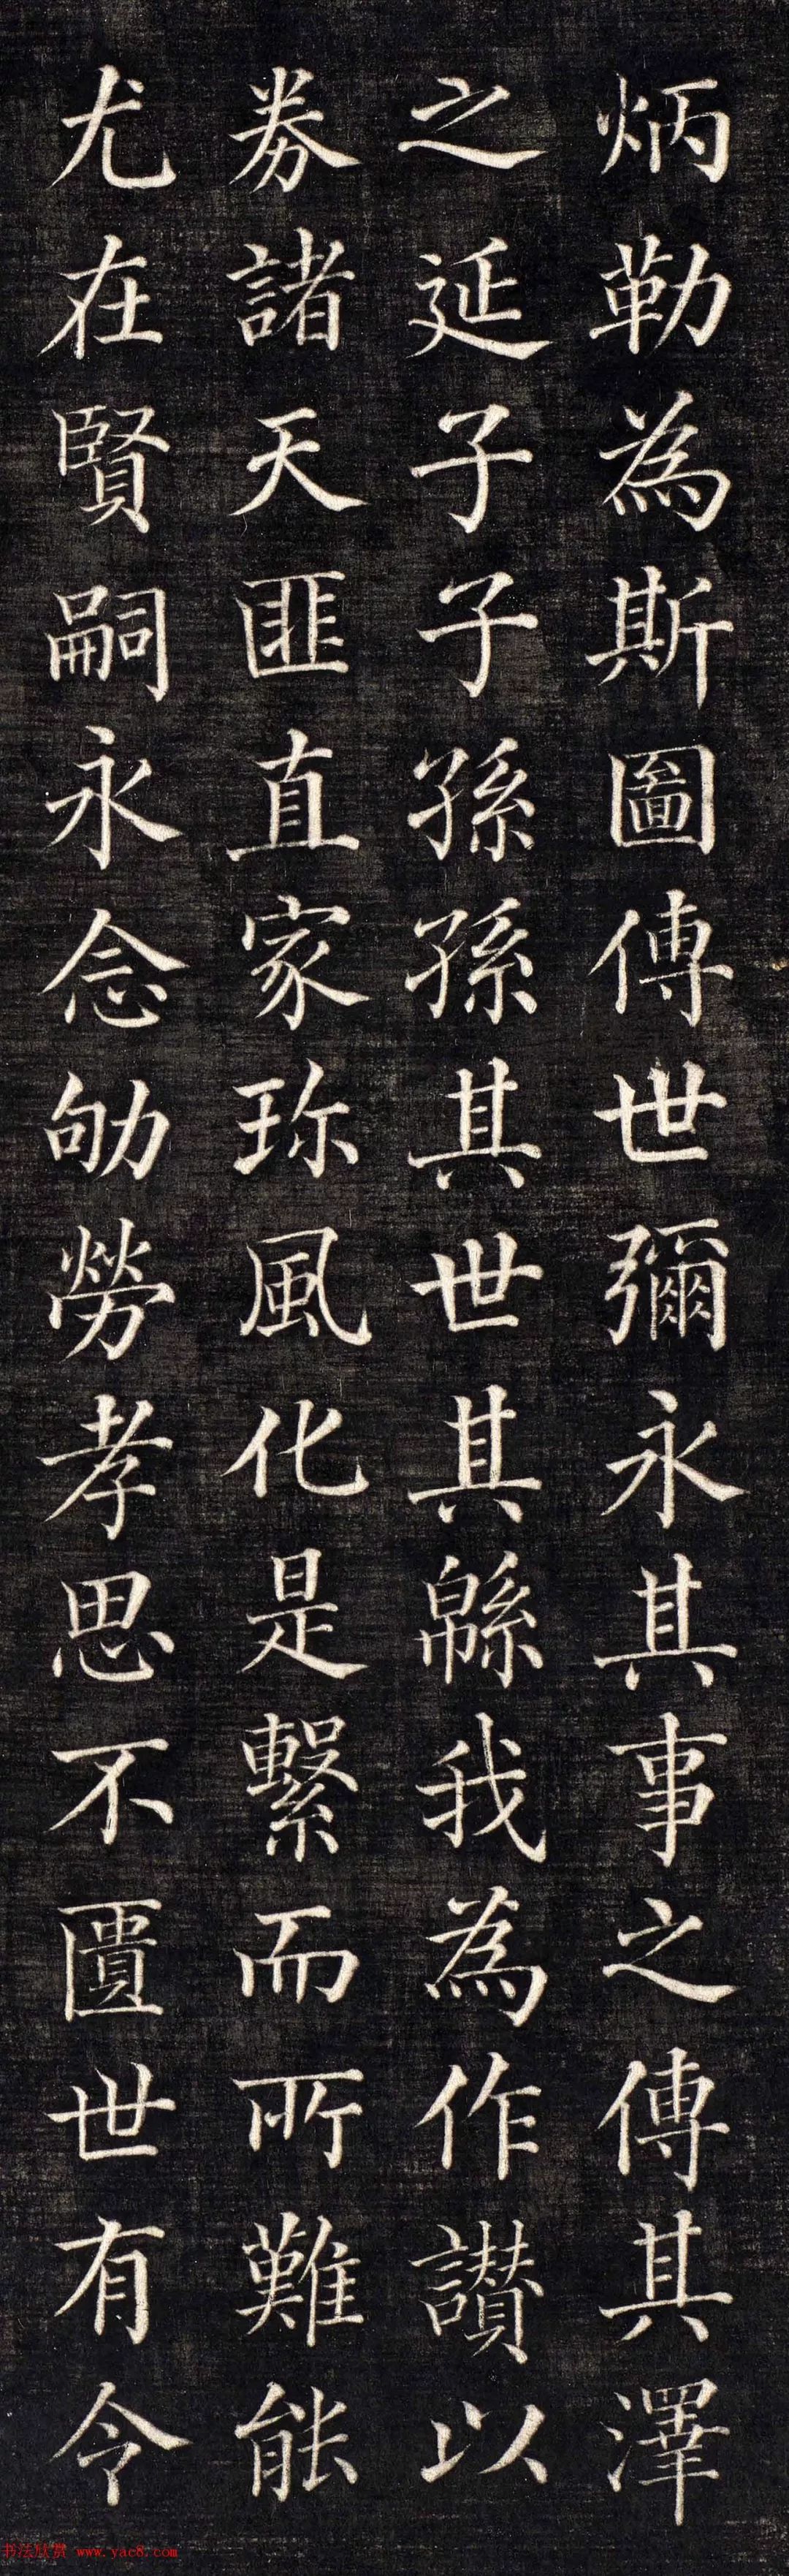 炳勒為斯圖傳世彌永其事之傳其澤
之延子子孫孫其世其緜我為作讃以
券諸天匪直家珎風化是繫而所難能
尤在賢嗣永念劬勞孝思不匱世有令
书法欣赏 www.yac8.com